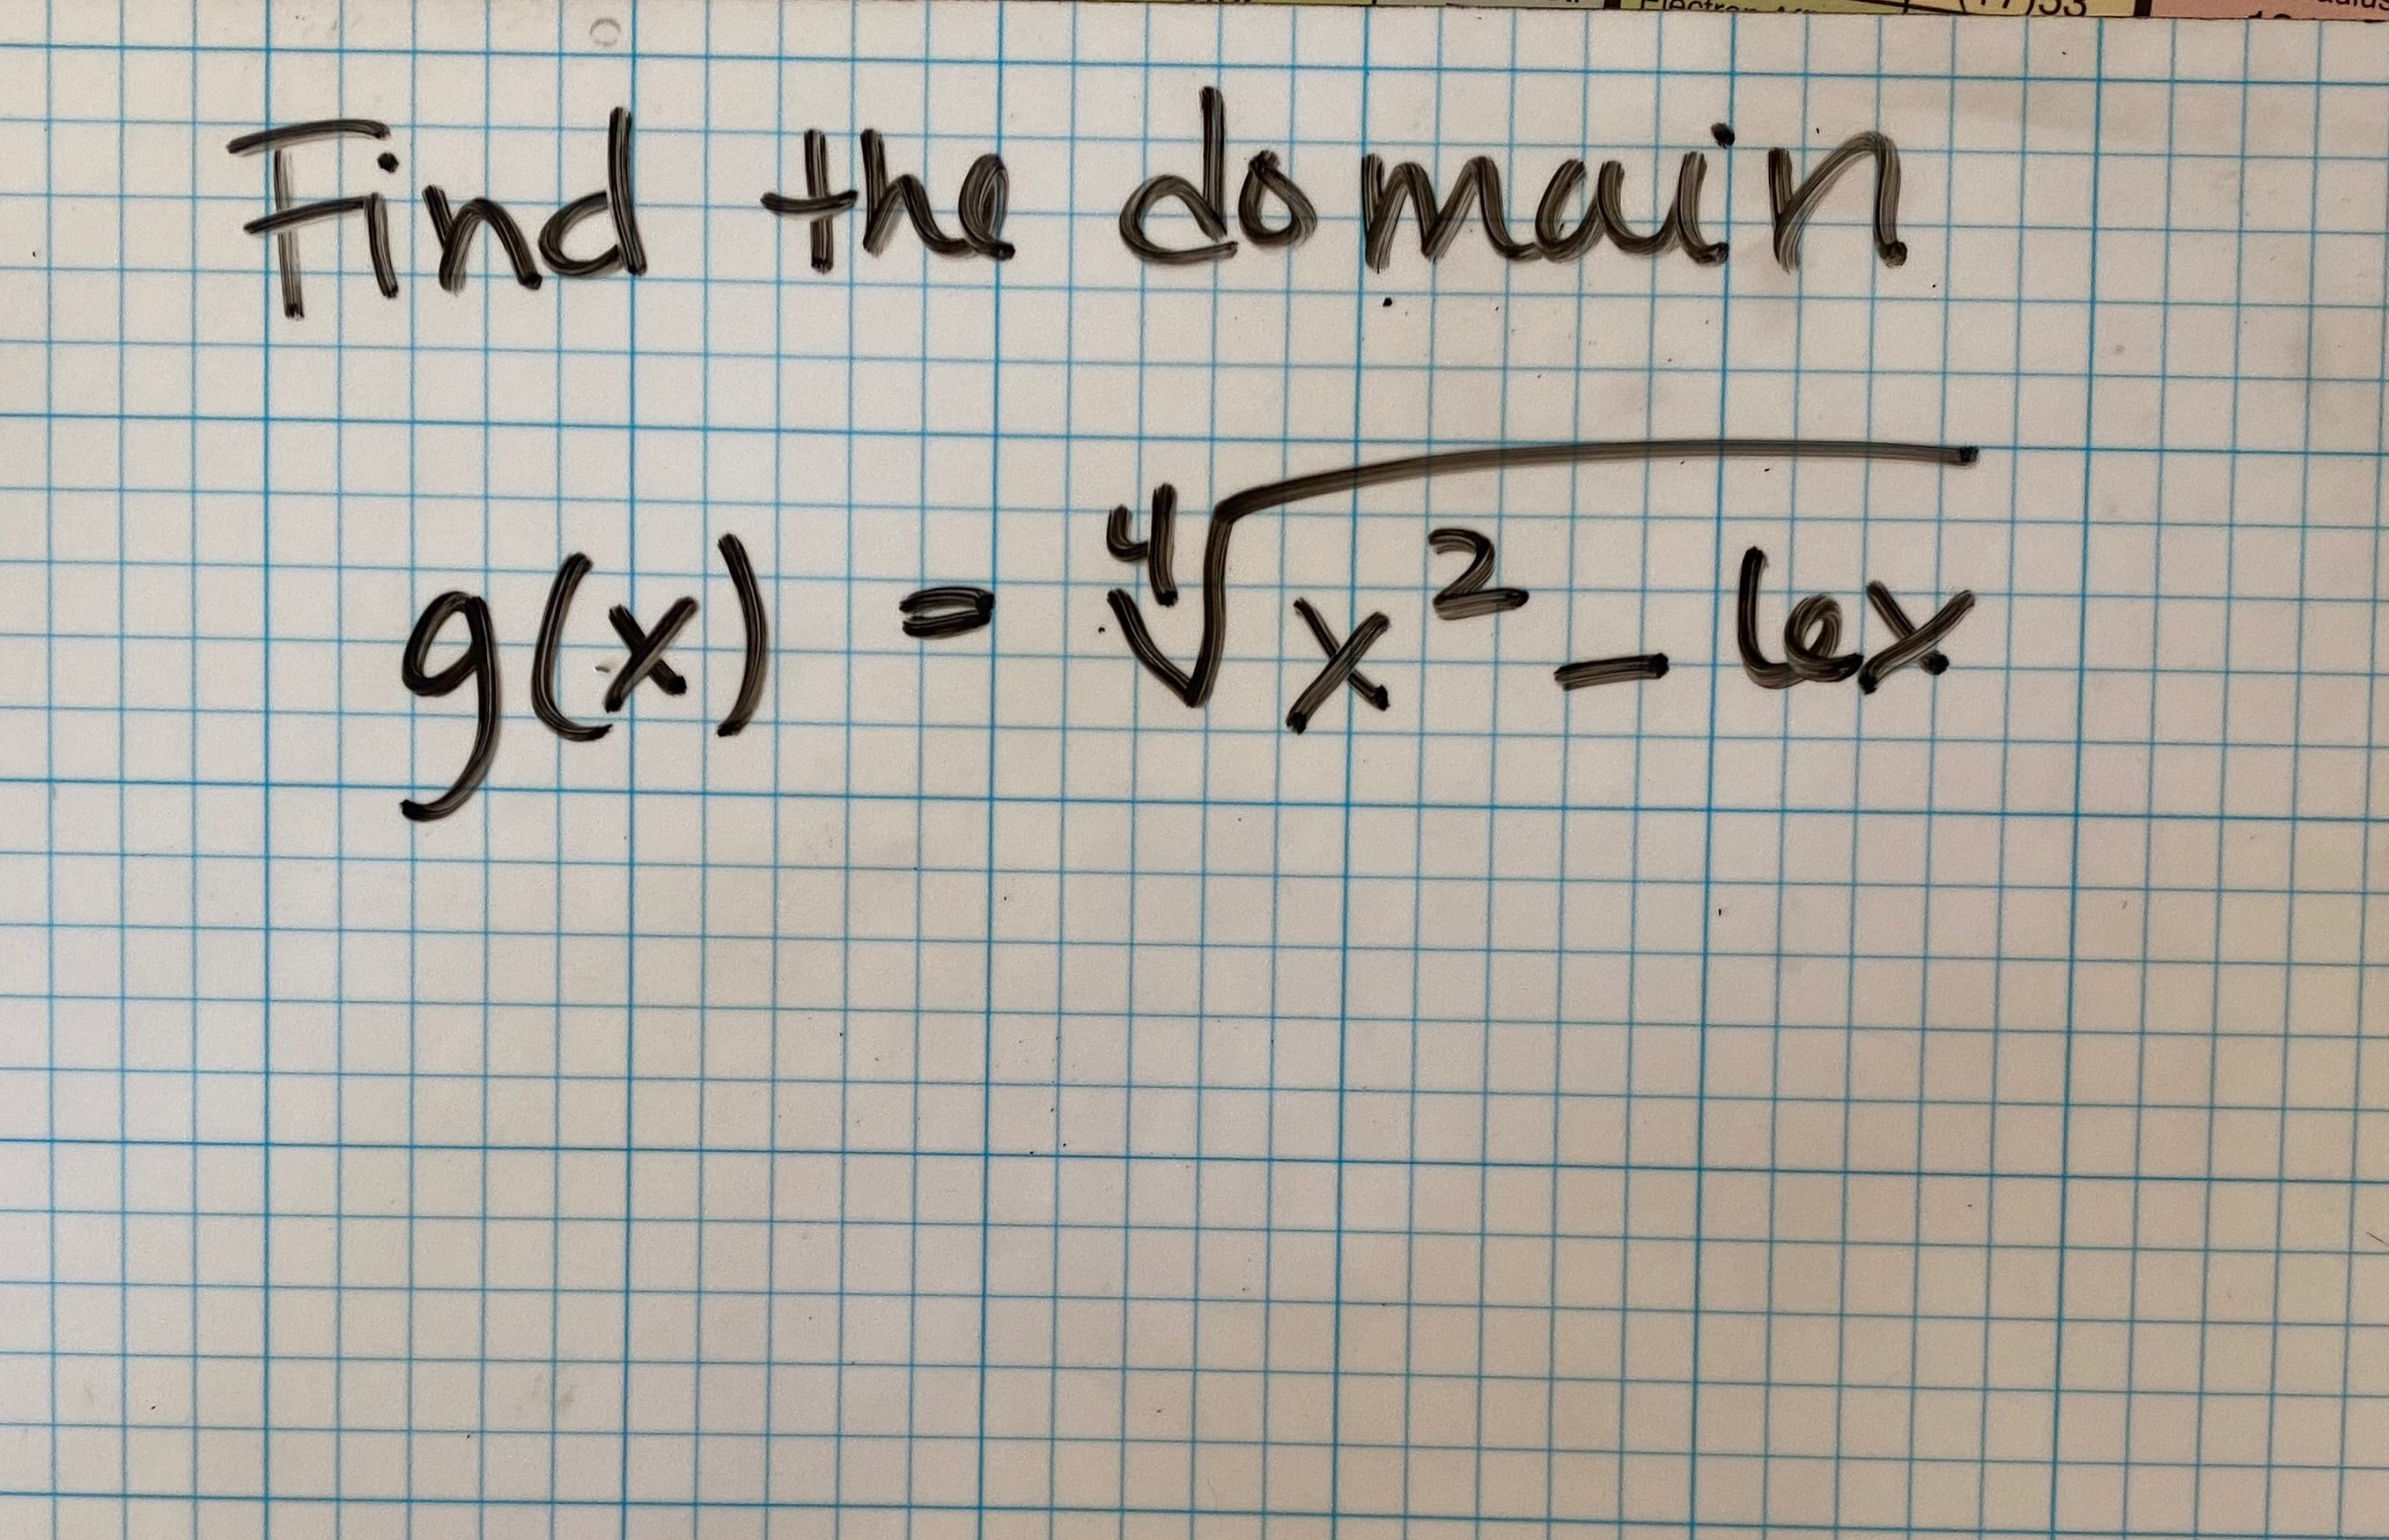 Find the domain
g(x) = ∜(x² - 6x)